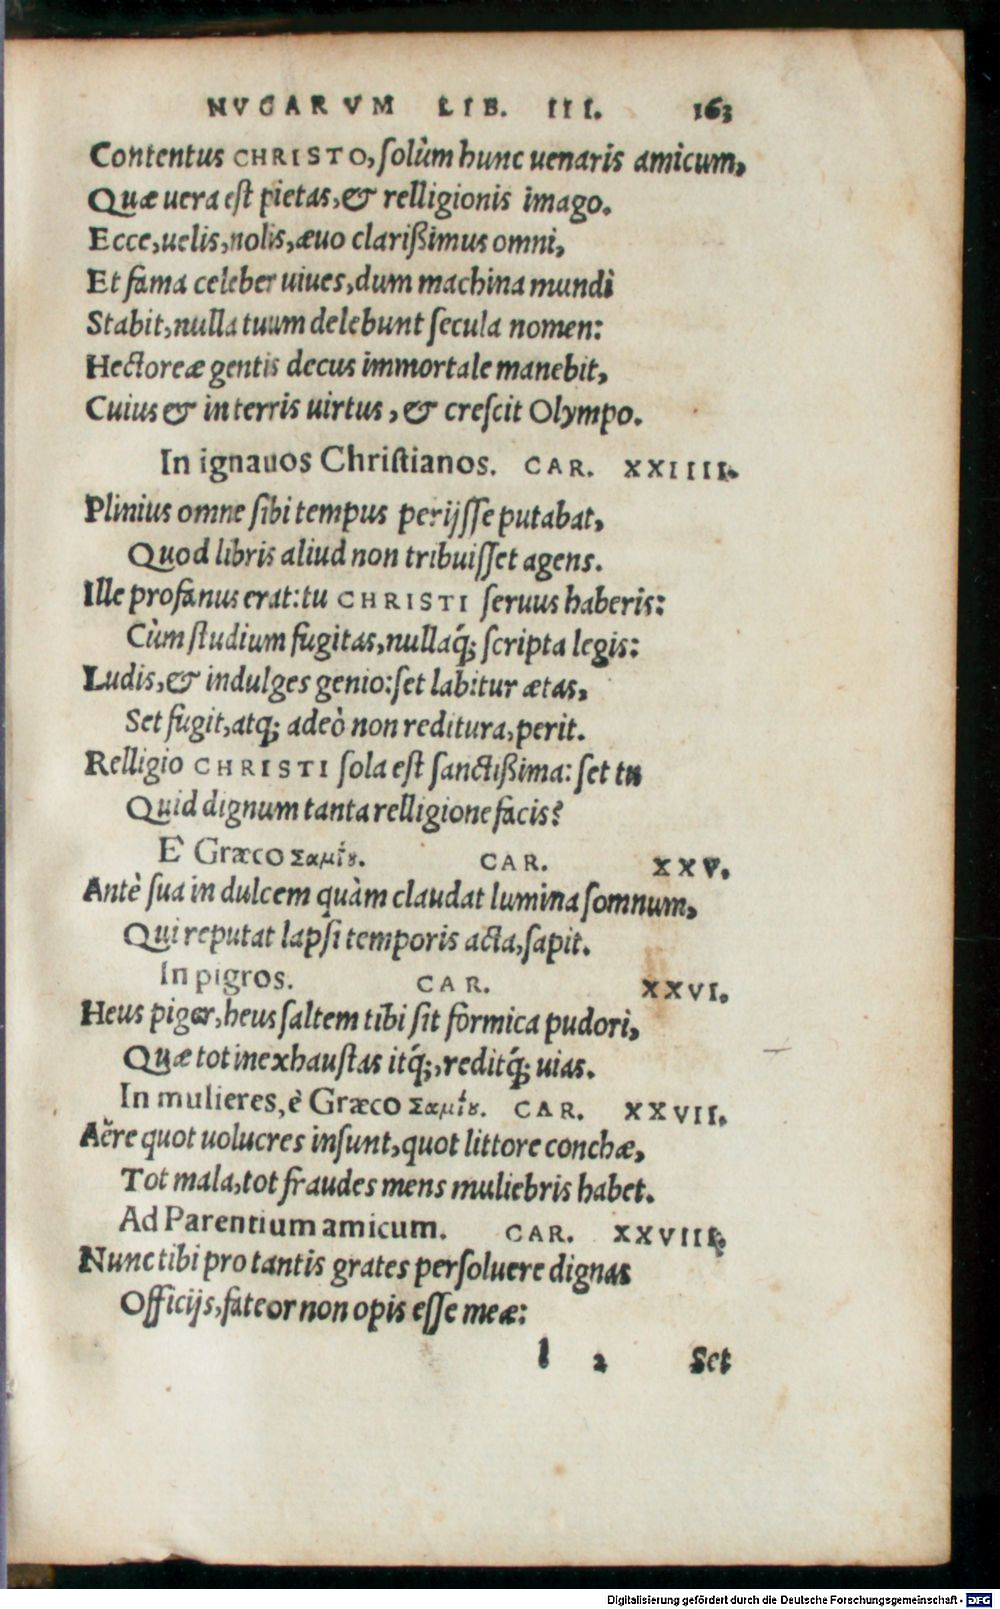 NVGARVM LIB. III. 163
Contentus CHRISTO, solùm hunc uenaris amicum,
Quæ uera est pietas, & relligionis imago.
Ecce, uelis, nolis, æuo clarißimus omni,
Et fama celeber uiues, dum machina mundi
Stabit, nulla tuum delebunt secula nomen:
Hectoreæ gentis decus immortale manebit,
Cuius & in terris uirtus, & crescit Olympo.
In ignauos Christianos. CAR. XXIIII.
Plinius omne sibi tempus perijsse putabat,
Quod libris aliud non tribuisset agens.
Ille profanus erat: tu CHRISTI seruus haberis:
Cùm studium fugitas, nullaq́; scripta legis:
Ludis, & indulges genio: set labitur ætas,
Set fugit, atq; adeò non reditura, perit.
Relligio CHRISTI sola est sanctißima: set tu
Quid dignum tanta relligione facis?
E Græco Σαμίου. CAR. XXV.
Antè sua in dulcem quàm claudat lumina somnum,
Qui reputat lapsi temporis acta, sapit.
In pigros. CAR. XXVI.
Heus piger, heus saltem tibi sit formica pudori,
Quæ tot inexhaustas itq́;, reditq́; uias.
In mulieres, è Græco Σαμίου. CAR. XXVII.
Aëre quot uolucres insunt, quot littore conchæ,
Tot mala, tot fraudes mens muliebris habet.
Ad Parentium amicum. CAR. XXVIII.
Nunc tibi pro tantis grates persoluere dignas
Officijs, fateor non opis esse meæ:
l 2 Set
Digitalisierung gefördert durch die Deutsche Forschungsgemeinschaft - DFG